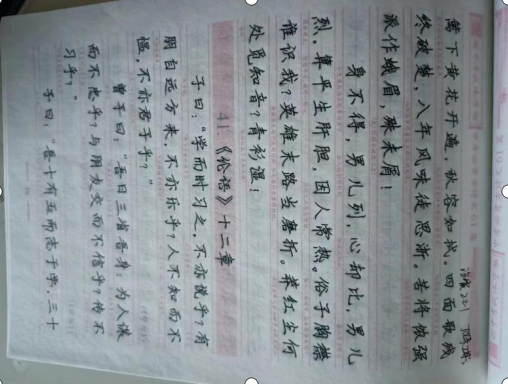 篱下黄花开遍，秋容如拭。四面歌残
终破楚，八年风味徒思浙。苦将侬强
派作蛾眉，殊未屑！
身不得，男儿列，心却比，男儿
烈。算平生肝胆，因人常热。俗子胸襟
谁识我？英雄末路当磨折。莽红尘何
处觅知音？青衫湿！
41.《论语》十二章
子曰：“学而时习之，不亦说乎？有
朋自远方来，不亦乐乎？人不知而不
愠，不亦君子乎？”
曾子曰：“吾日三省吾身：为人谋
而不忠乎？与朋友交而不信乎？传不
习乎？”
子曰：“吾十有五而志于学，三十